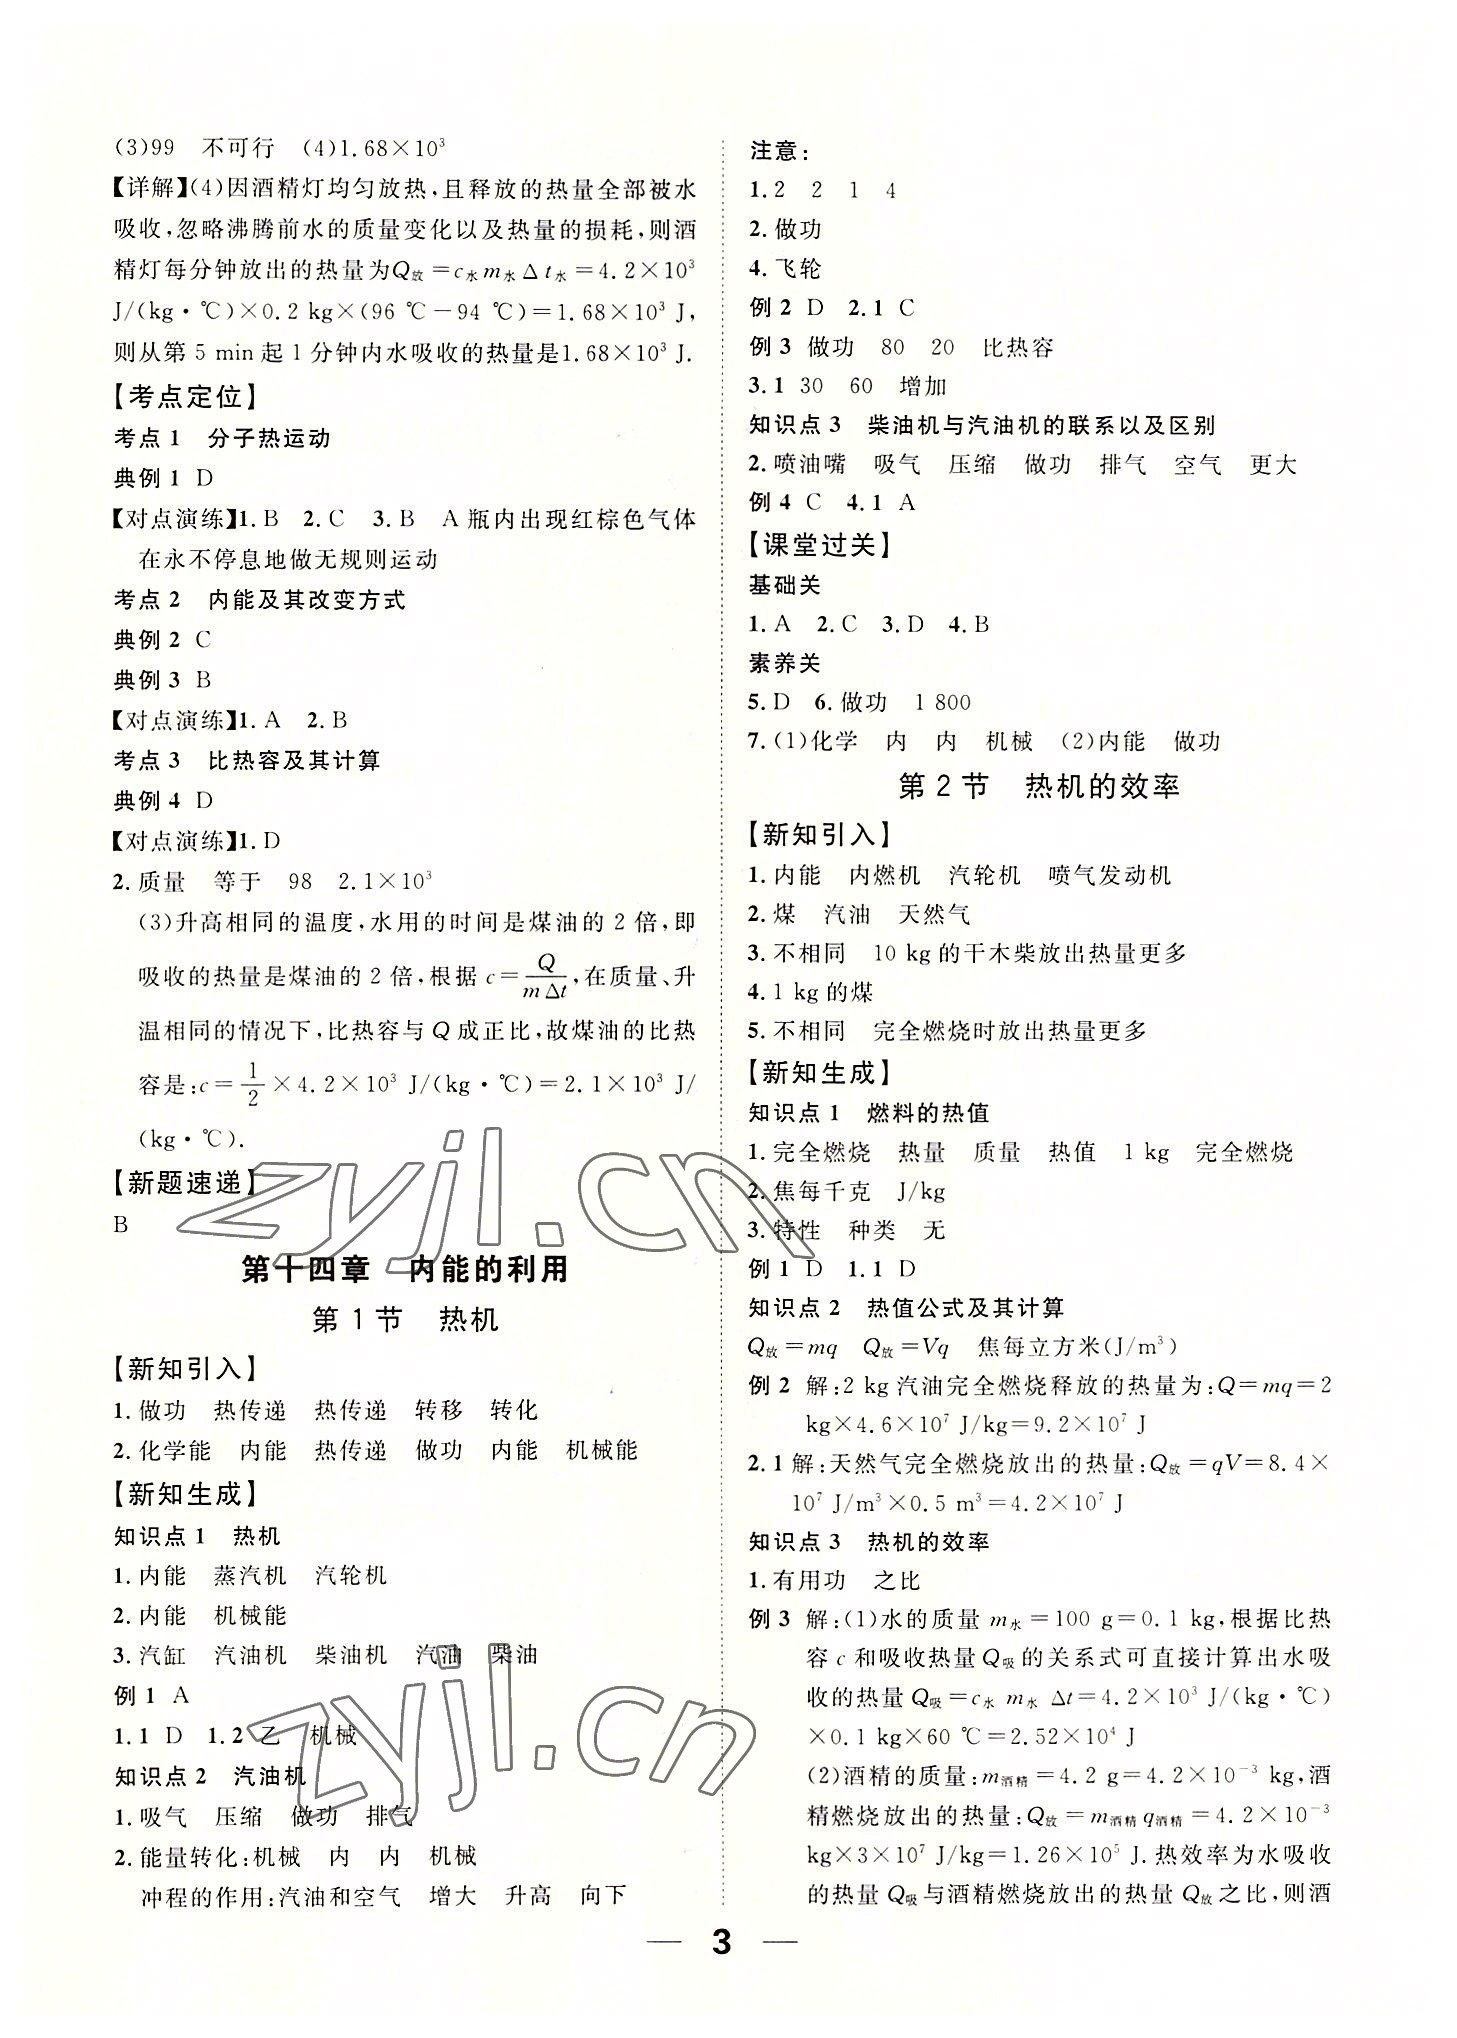 (3)99 不可行 (4)1.68×10³
【详解】(4)因酒精灯均匀放热,且释放的热量全部被水
吸收,忽略沸腾前水的质量变化以及热量的损耗,则酒
精灯每分钟放出的热量为Q放=c水m水Δt水=4.2×10³
J/(kg·℃)×0.2 kg×(96 ℃-94 ℃)=1.68×10³ J,
则从第 5 min起 1 分钟内水吸收的热量是1.68×10³ J.
【考点定位】
考点 1 分子热运动
典例 1 D
【对点演练】1.B 2.C 3.B A 瓶内出现红棕色气体
在永不停息地做无规则运动
考点 2 内能及其改变方式
典例 2 C
典例 3 B
【对点演练】1.A 2.B
考点 3 比热容及其计算
典例 4 D
【对点演练】1.D
2.质量 等于 98 2.1×10³
(3)升高相同的温度,水用的时间是煤油的 2 倍,即
吸收的热量是煤油的 2 倍,根据 c=Q/(mΔt),在质量、升
温相同的情况下,比热容与 Q 成正比,故煤油的比热
容是:c=1/2×4.2×10³ J/(kg·℃)=2.1×10³ J/
(kg·℃).
【新题速递】
B
第十四章 内能的利用
第 1 节 热机
【新知引入】
1.做功 热传递 热传递 转移 转化
2.化学能 内能 热传递 做功 内能 机械能
【新知生成】
知识点 1 热机
1.内能 蒸汽机 汽轮机
2.内能 机械能
3.汽缸 汽油机 柴油机 汽油 柴油
例 1 A
1.1 D 1.2 乙 机械
知识点 2 汽油机
1.吸气 压缩 做功 排气
2.能量转化:机械 内 内 机械
冲程的作用:汽油和空气 增大 升高 向下
注意:
1.2 2 1 4
2.做功
4.飞轮
例 2 D 2.1 C
例 3 做功 80 20 比热容
3.1 30 60 增加
知识点 3 柴油机与汽油机的联系以及区别
2.喷油嘴 吸气 压缩 做功 排气 空气 更大
例 4 C 4.1 A
【课堂过关】
基础关
1.A 2.C 3.D 4.B
素养关
5.D 6.做功 1 800
7.(1)化学 内 内 机械 (2)内能 做功
第 2 节 热机的效率
【新知引入】
1.内能 内燃机 汽轮机 喷气发动机
2.煤 汽油 天然气
3.不相同 10 kg的干木柴放出热量更多
4.1 kg的煤
5.不相同 完全燃烧时放出热量更多
【新知生成】
知识点 1 燃料的热值
1.完全燃烧 热量 质量 热值 1 kg 完全燃烧
2.焦每千克 J/kg
3.特性 种类 无
例 1 D 1.1 D
知识点 2 热值公式及其计算
Q放=mq Q放=Vq 焦每立方米(J/m³)
例 2 解:2 kg汽油完全燃烧释放的热量为:Q=mq=2
kg×4.6×10⁷ J/kg=9.2×10⁷ J
2.1 解:天然气完全燃烧放出的热量:Q放=qV=8.4×
10⁷ J/m³×0.5 m³=4.2×10⁷ J
知识点 3 热机的效率
1.有用功 之比
例 3 解:(1)水的质量 m水=100 g=0.1 kg,根据比热
容 c 和吸收热量Q吸的关系式可直接计算出水吸
收的热量 Q吸=c水 m水 Δt=4.2×10³ J/(kg·℃)
×0.1 kg×60 ℃=2.52×10⁴ J
(2)酒精的质量:m酒精=4.2 g=4.2×10⁻³ kg,酒
精燃烧放出的热量:Q放=m酒精q酒精=4.2×10⁻³
kg×3×10⁷ J/kg=1.26×10⁵ J.热效率为水吸收
的热量 Q吸与酒精燃烧放出的热量 Q放之比,则酒
— 3 —
zyjl.cn
zyjl.cn